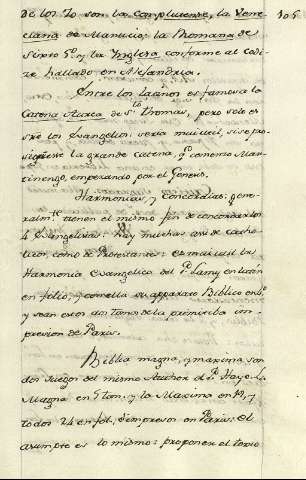 de los 70 son la Complutense, la Vene
ciana de Manucio; la Romana de
Sixto 5º y la Inglesa, conforme al codi
ce hallado en Alejandria.
105
Entre los latinos es famosa la
Catena Aurea de Sto. Thomas, pero solo es
sre los Evangelios: seria mui util, si se pro
siguiesse la grande catena, q comenzo Mar
tinengo, empezando por el Genesis.
Harmonias, y Concordias: gene
ralmte tienen el mismo fin de concordar los
4 Evangelistas: Hay muchas asi de Catho
licos, como de Protestantes: es mui util la
Harmonia Evangelica del P. Lamy en latin
en folio, y con ella su apparato Biblico en 4º
y sean estos dos tomos de la primitiba im
presion de Paris.
Biblia magna, y maxima son
dos juegos del mismo Author el P. Haye. La
Magna en 5 tom. y la Maxima en 19, y
todos 24 en fol. è impresos en Paris: el
asumpto es lo mismo: proponer el texto